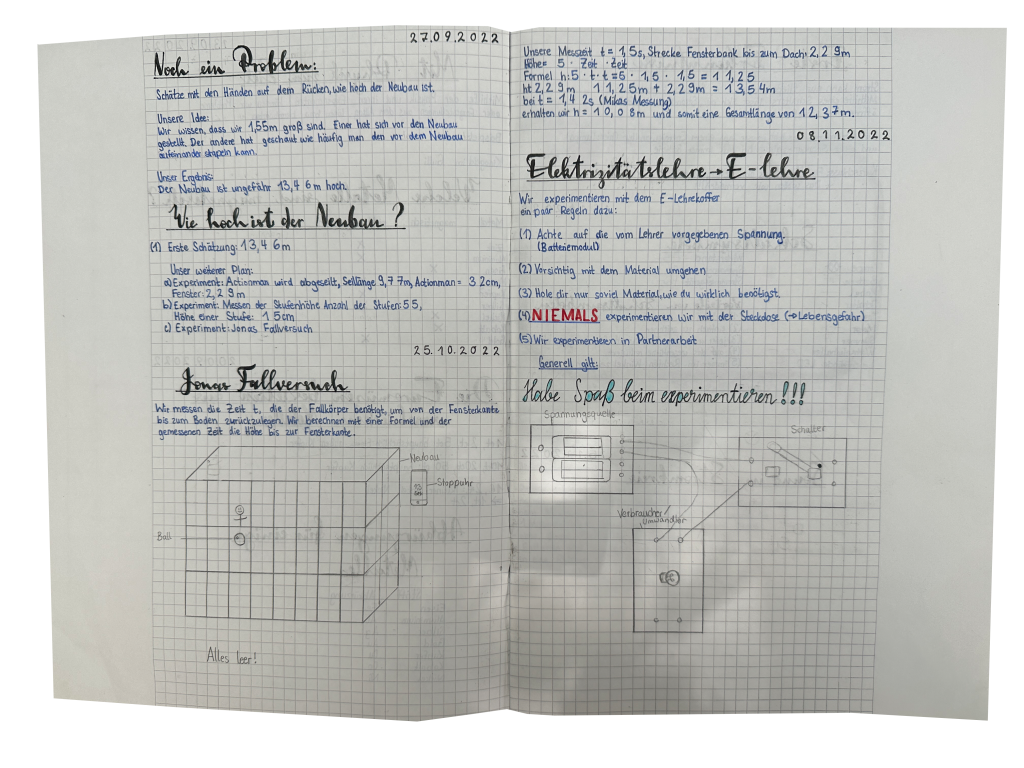 27.09.2022
Noch ein Problem:
Schätze mit den Händen auf dem Rücken, wie hoch der Neubau ist.
Unsere Idee:
Wir wissen, dass wir 1,55m groß sind. Einer hat sich vor den Neubau
gestellt. Der andere hat geschaut wie häufig man den vor dem Neubau
aufeinander stapeln kann.
Unser Ergebnis:
Der Neubau ist ungefähr 13,46m hoch.
Wie hoch ist der Neubau?
(1) Erste Schätzung: 13,46m
Unser weiterer Plan:
a) Experiment: Actionman wird abgeseilt, Seillänge 9,77m, Actionman= 32cm,
Fenster: 2,29m
b) Experiment: Messen der Stufenhöhe Anzahl der Stufen: 55,
Höhe einer Stufe: 15cm
c) Experiment: Jonas Fallversuch
25.10.2022
Jonas Fallversuch
Wir messen die Zeit t, die der Fallkörper benötigt, um von der Fensterkante
bis zum Boden zurückzulegen. Wir berechnen mit einer Formel und der
gemessenen Zeit die Höhe bis zur Fensterkante.
Neubau
Stoppuhr
Ball
Alles leer!
Unsere Messzeit t= 1,5s, Strecke Fensterbank bis zum Dach: 2,29m
Höhe= 5 · Zeit · Zeit
Formel h: 5 · t · t = 5 · 1,5 · 1,5 = 11,25
h+2,29m 11,25m + 2,29m = 13,54m
bei t = 1,42s (Mikas Messung)
erhalten wir h = 10,08m und somit eine Gesamtlänge von 12,37m.
08.11.2022
Elektrizitätslehre → E-lehre
Wir experimentieren mit dem E-Lehrekoffer
ein paar Regeln dazu:
(1) Achte auf die vom Lehrer vorgegebenen Spannung.
(Batteriemodul)
(2) Vorsichtig mit dem Material umgehen
(3) Hole dir nur soviel Material, wie du wirklich benötigst.
(4) NIEMALS experimentieren wir mit der Steckdose (→Lebensgefahr)
(5) Wir experimentieren in Partnerarbeit
Generell gilt:
Habe Spaß beim experimentieren!!!
Spannungsquelle
Schalter
Verbraucher/
Umwandler